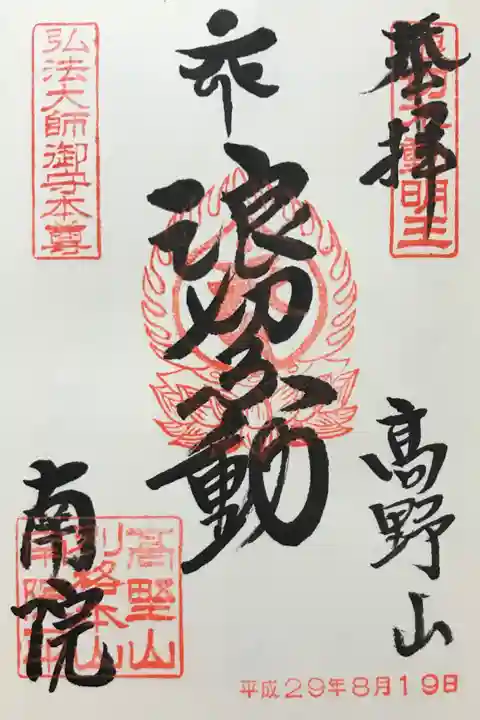 奉拝
高野山
浪切不動
南院
弘法大師御守本尊
高野山
別格本山
南院印
平成29年8月19日